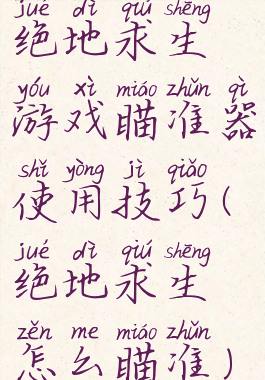 jué dì qiú shēng
绝地求生
yóu xì miáo zhǔn qì
游戏瞄准器
shǐ yòng jì qiǎo
使用技巧(
jué dì qiú shēng
绝地求生
zěn me miáo zhǔn
怎么瞄准)